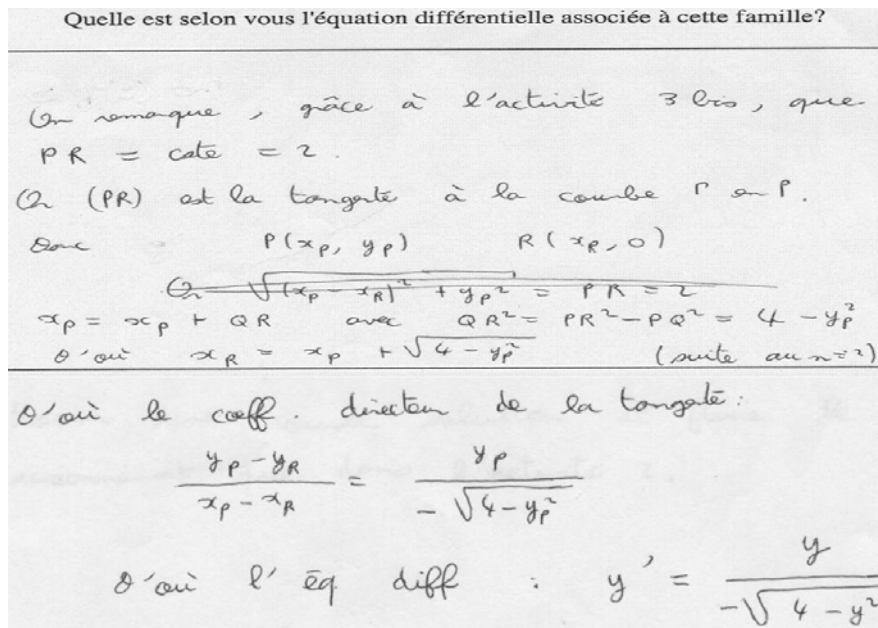 Quelle est selon vous l'équation différentielle associée à cette famille?
On remarque, grâce à l'activité 3 bis, que
PR = cste = 2.
Or (PR) est la tangente à la courbe Γ en P.
Donc P(x_P, y_P) R(x_R, 0)
Or √((x_P - x_R)² + y_P²) = PR = 2
x_P = x_P + QR avec QR² = PR² - PQ² = 4 - y_P²
D'où x_R = x_P + √(4 - y_P²) (suite au n=2)
D'où le coeff. directeur de la tangente :
(y_P - y_R)/(x_P - x_R) = y_P/(-√(4 - y_P²))
D'où l'éq diff : y' = y/(-√(4 - y²))